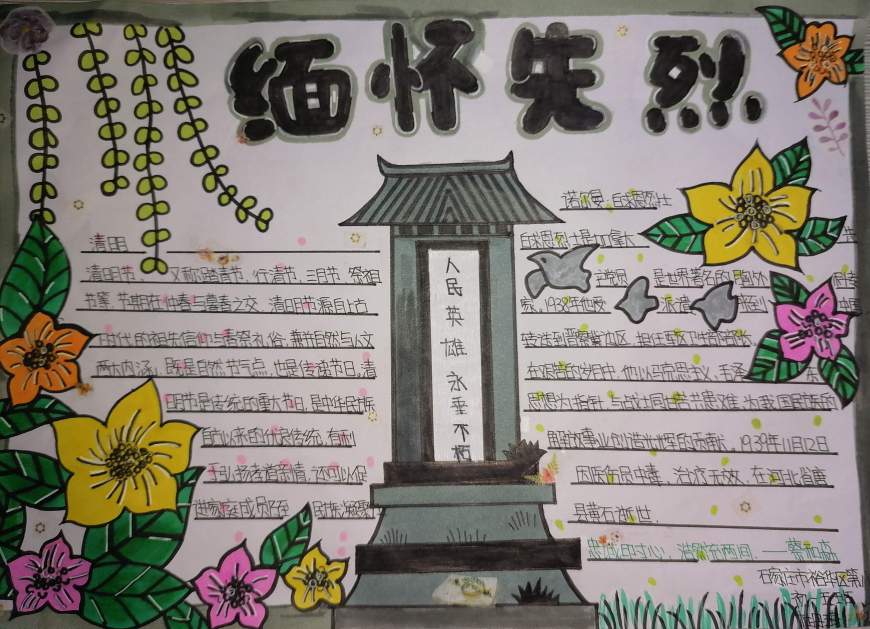 缅怀先烈
人民英雄永垂不朽
清明
清明节,又称踏青节、行清节、三月节、祭祖
节等,节期在仲春与暮春之交。清明节源自上古
时代的祖先信仰与春祭礼俗,兼具自然与人文
两大内涵,既是自然节气点,也是传统节日,清
明节是传统的重大节日,是中华民族
自古以来的优良传统,有利
于弘扬孝道亲情,还可以促
进家庭成员
诺尔曼·白求恩烈士
白求恩烈士是加拿大
党员 是世界著名的胸外
家。1938年他
转送到晋察冀边区,担任军区卫生顾问。
在艰苦的岁月中,他以马克思主义,毛泽
思想为指针,与战士同甘苦共患难,为我国民族的
解放事业创造光辉的贡献。1939年11月12日
因医伤员中毒,治疗无效,在河北省唐
县黄石逝世。
忠诚印寸心,浩然充两间。——蔡和森
石家庄市裕华区第